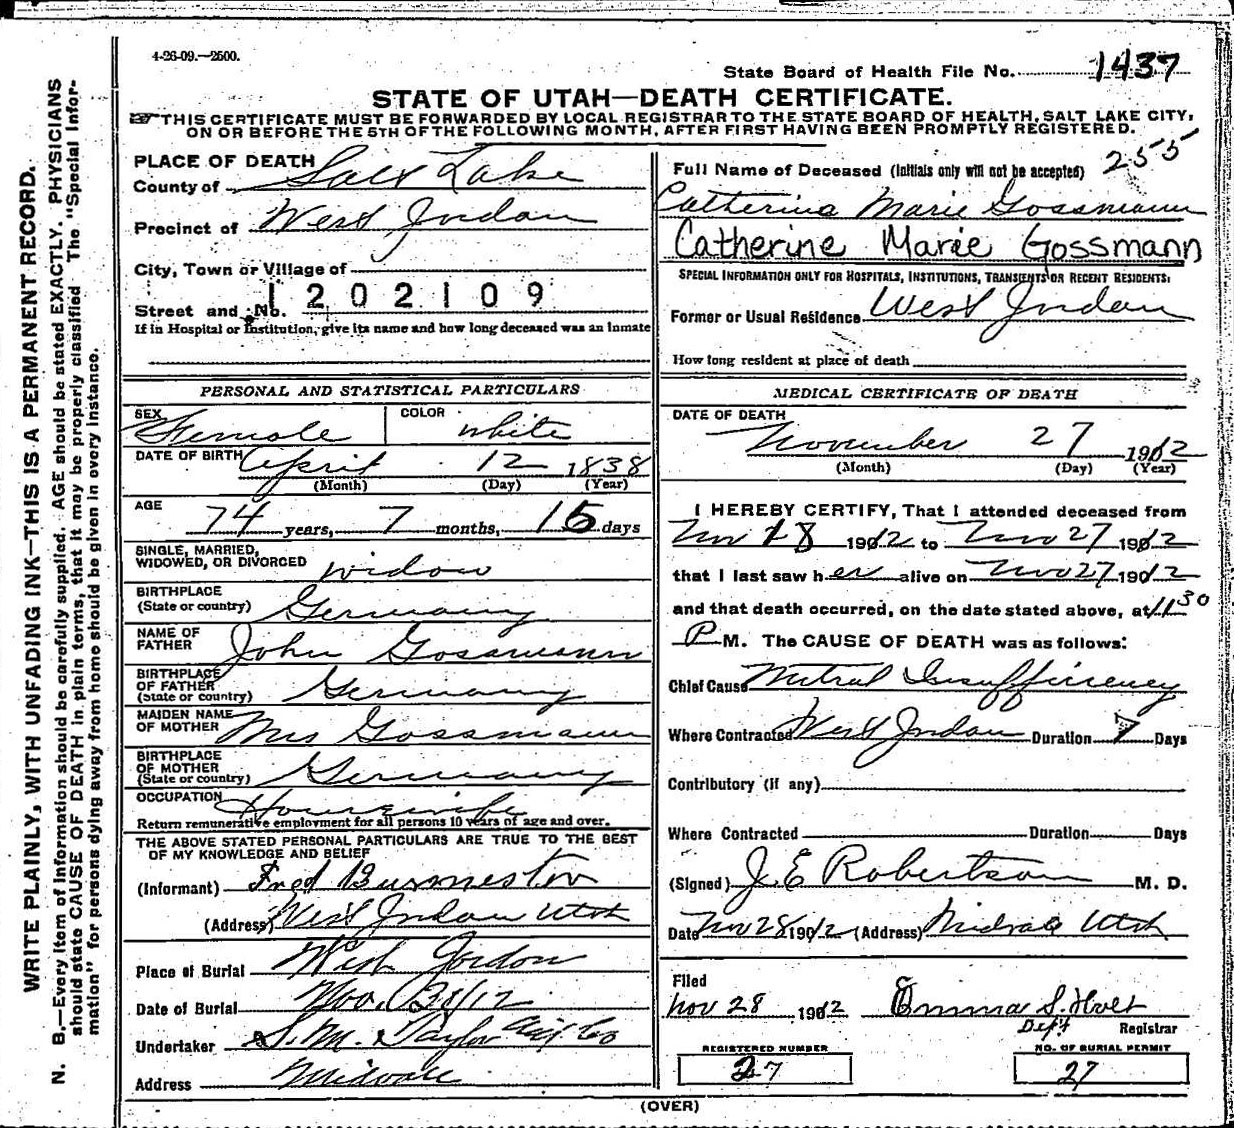 4-26-09.—2500.
State Board of Health File No. 1437
STATE OF UTAH—DEATH CERTIFICATE.
THIS CERTIFICATE MUST BE FORWARDED BY LOCAL REGISTRAR TO THE STATE BOARD OF HEALTH, SALT LAKE CITY,
ON OR BEFORE THE 5TH OF THE FOLLOWING MONTH, AFTER FIRST HAVING BEEN PROMPTLY REGISTERED.
WRITE PLAINLY, WITH UNFADING INK—THIS IS A PERMANENT RECORD.
N. B.—Every item of information should be carefully supplied. AGE should be stated EXACTLY. PHYSICIANS
should state CAUSE OF DEATH in plain terms, that it may be properly classified The "Special Infor-
mation" for persons dying away from home should be given in every instance.
PLACE OF DEATH
County of Salt Lake
Precinct of West Jordan
City, Town or Village of
1202109
Street and No.
If in Hospital or Institution, give its name and how long deceased was an inmate
255
Full Name of Deceased (Initials only will not be accepted)
Catterina Marie Gossmann
Catherine Marie Gossmann
SPECIAL INFORMATION ONLY FOR HOSPITALS, INSTITUTIONS, TRANSIENTS OR RECENT RESIDENTS:
Former or Usual Residence West Jordan
How long resident at place of death
PERSONAL AND STATISTICAL PARTICULARS
SEX Female COLOR white
DATE OF BIRTH April 12 1838
(Month) (Day) (Year)
AGE 74 years, 7 months, 15 days
SINGLE, MARRIED,
WIDOWED, OR DIVORCED widow
BIRTHPLACE
(State or country) Germany
NAME OF
FATHER John Gossmann
BIRTHPLACE
OF FATHER
(State or country) Germany
MAIDEN NAME
OF MOTHER Mrs Gossmann
BIRTHPLACE
OF MOTHER
(State or country) Germany
OCCUPATION Housewife
Return remunerative employment for all persons 10 years of age and over.
THE ABOVE STATED PERSONAL PARTICULARS ARE TRUE TO THE BEST
OF MY KNOWLEDGE AND BELIEF
(Informant) Fred Burmester
(Address) West Jordan Utah
Place of Burial West Jordon
Date of Burial Nov. 28/12
Undertaker S. M. Taylor Co
Address Midvale
MEDICAL CERTIFICATE OF DEATH
DATE OF DEATH
November 27 1912
(Month) (Day) (Year)
I HEREBY CERTIFY, That I attended deceased from
Nov 18 1912 to Nov 27 1912
that I last saw her alive on Nov 27 1912
and that death occurred, on the date stated above, at 11 30
P M. The CAUSE OF DEATH was as follows:
Chief Cause Mitral Insufficiency
Where Contracted West Jordan Duration 7 Days
Contributory (if any)
Where Contracted Duration Days
(Signed) J. E Robertson M. D.
Date Nov 28 1912 (Address) Midvale Utah
Filed
Nov 28 1912 Emma S. Holt
Dept Registrar
REGISTERED NUMBER NO. OF BURIAL PERMIT
27 27
(OVER)